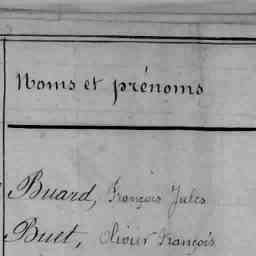 Noms et prénoms
Buard, François Jules
Buet, Olivier François